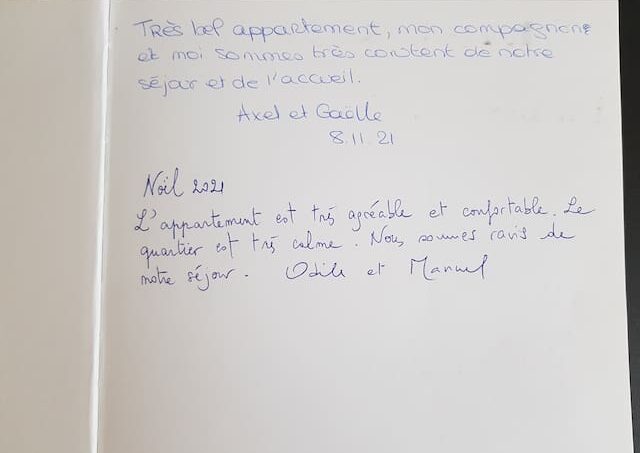 Très bel appartement, mon compagnon
et moi sommes très content de notre
séjour et de l'accueil.
Axel et Gaëlle
8.11.21
Noël 2021
L'appartement est très agréable et confortable. Le
quartier est très calme. Nous sommes ravis de
notre séjour. Odile et Manuel